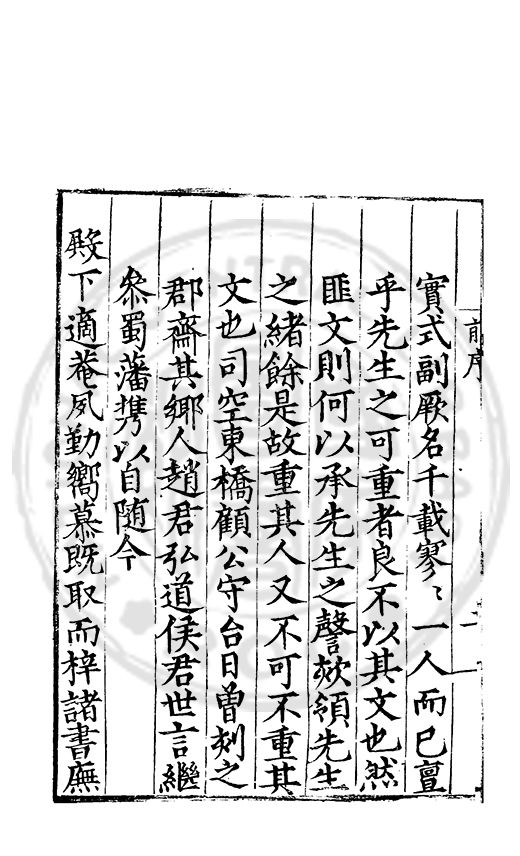 前序 二
實式副厥名千載寥〻一人而已亶
乎先生之可重者良不以其文也然
匪文則何以承先生之謦欬領先生
之緒餘是故重其人又不可不重其
文也司空東橋顧公守台日曾刻之
郡齋其鄉人趙君弘道侯君世言繼
叅蜀藩携以自随今
殿下適菴夙勤嚮慕既取而梓諸書廡